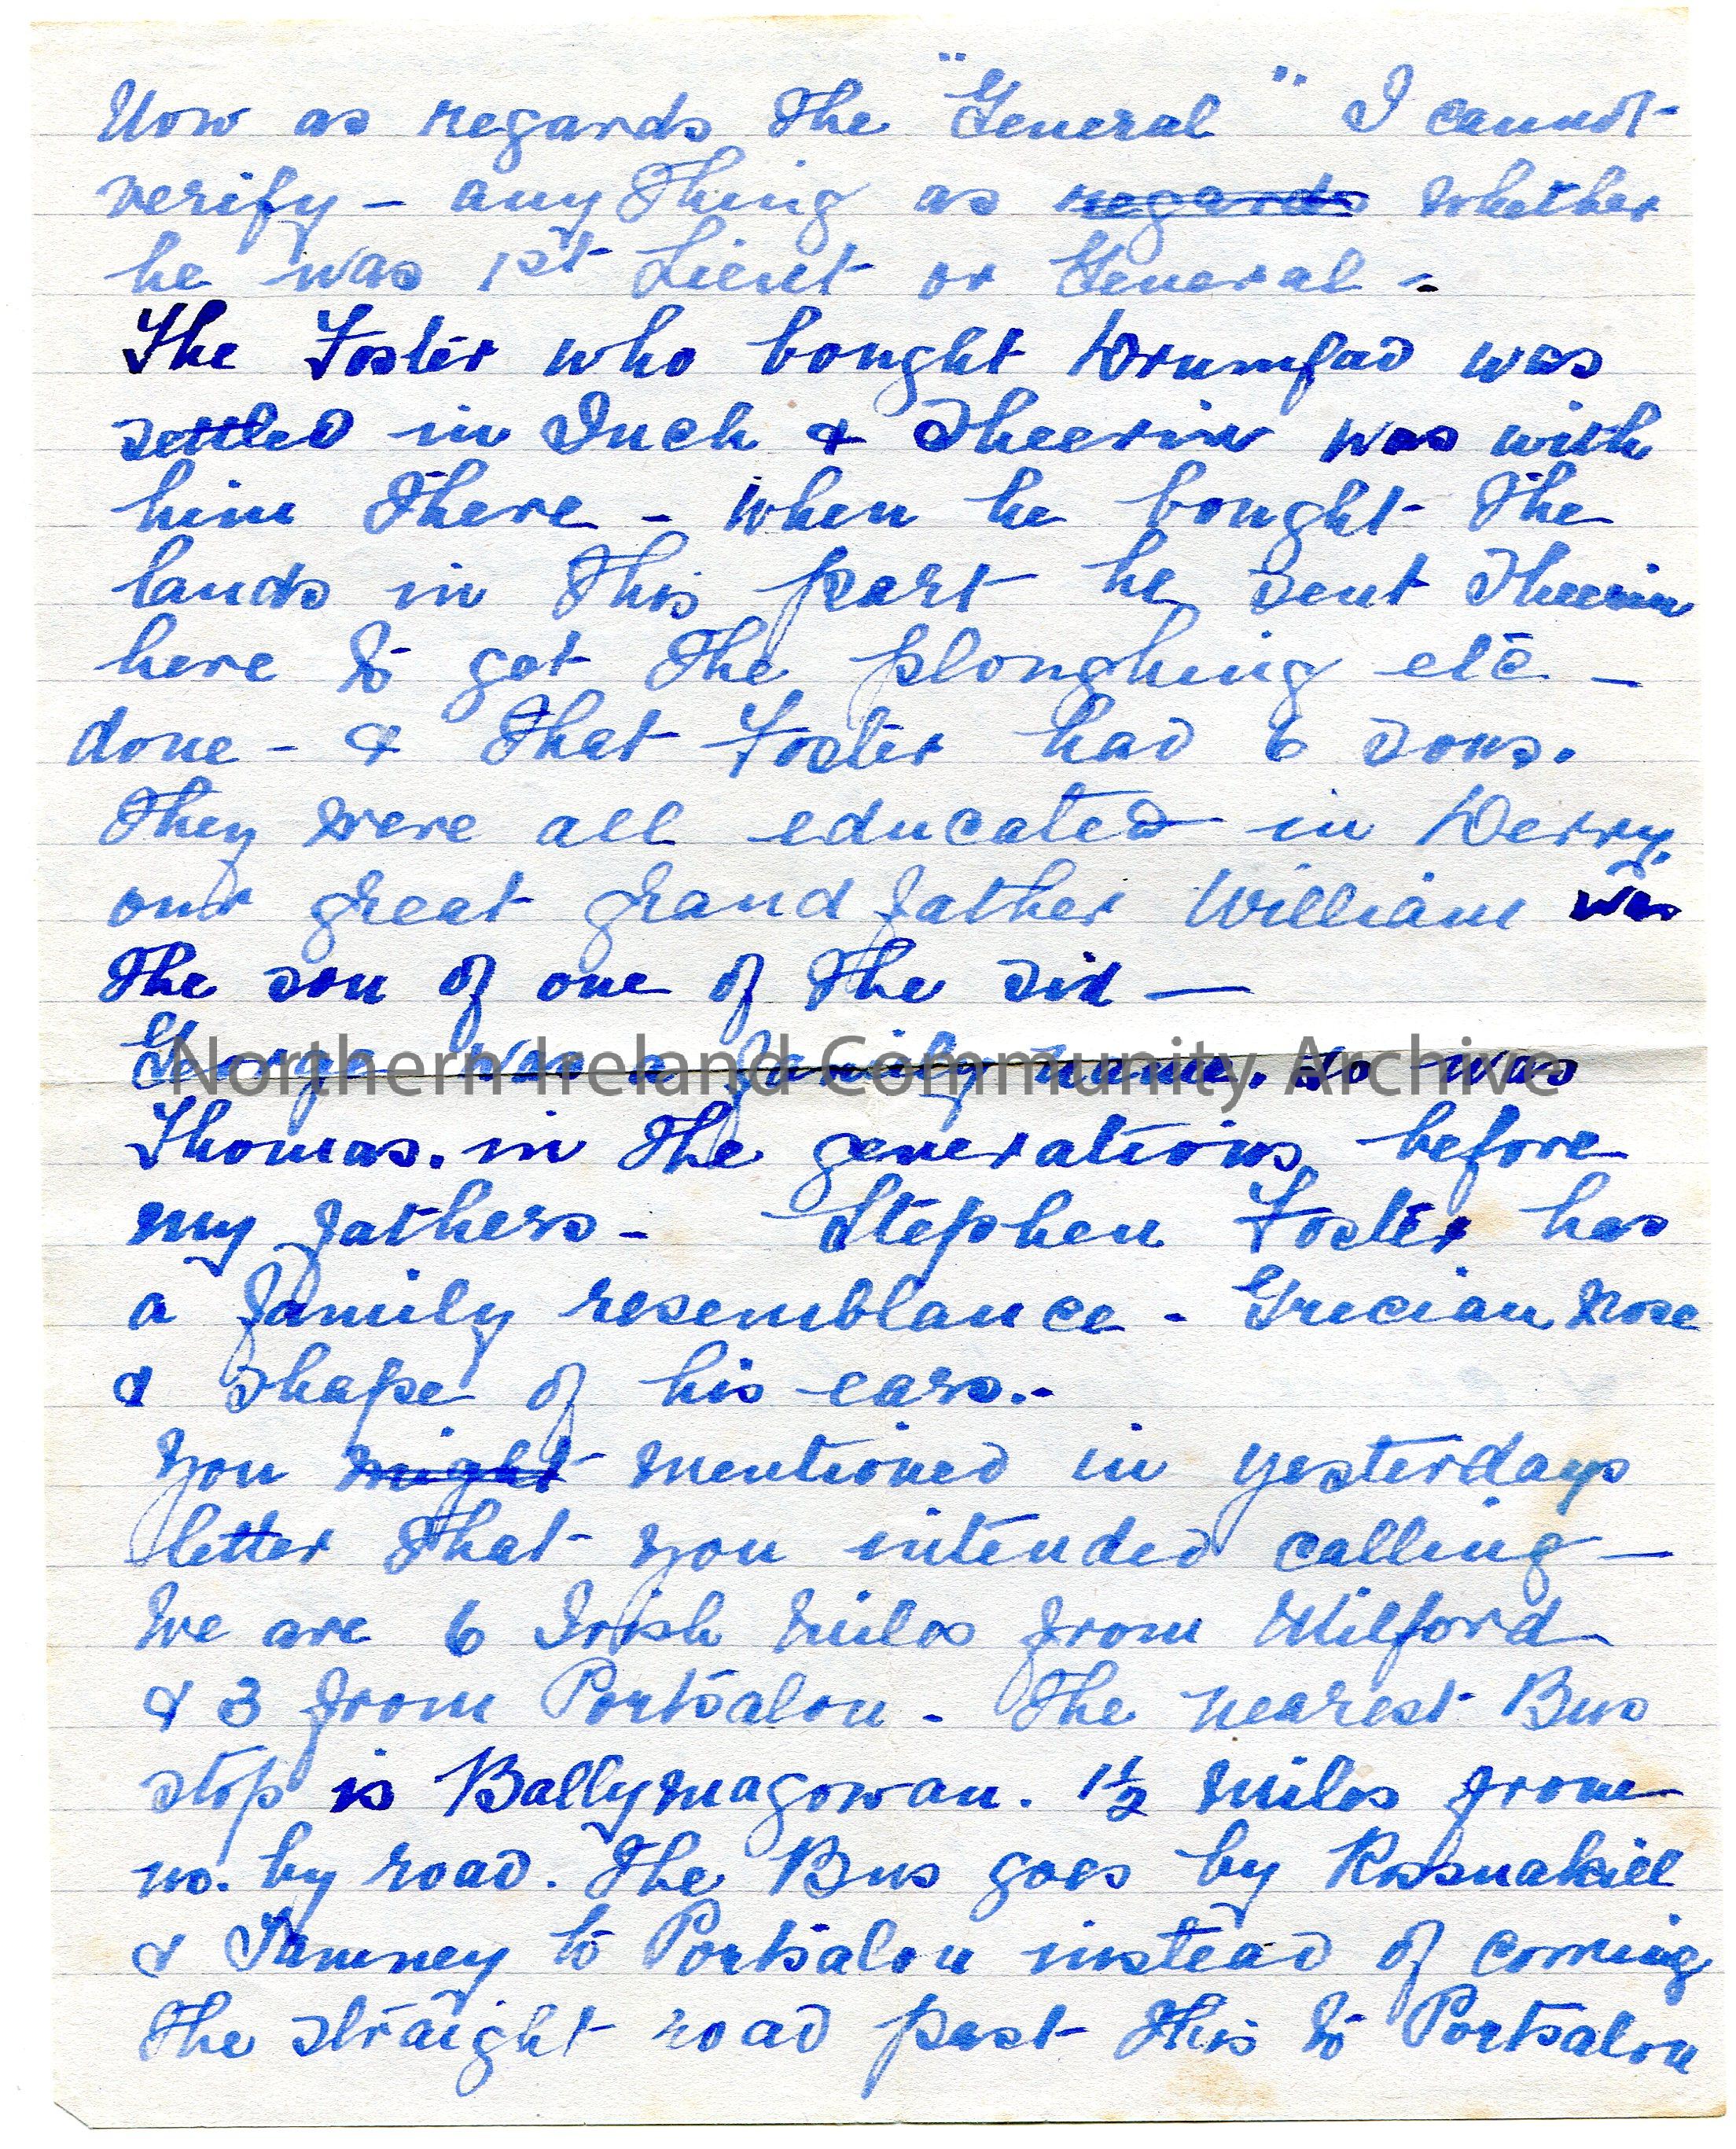 Now as regards the "General" I cannot
verify – any thing as regards whether
he was 1st Lieut or General –
The Foster who bought Drumfad was
settled in Inch & Sheerin was with
him there – when he bought the
lands in this part he sent Sheerin
here to get the ploughing etc –
done – & that Foster had 6 sons.
They were all educated in Derry.
our great grand father William was
the son of one of the six —
George was a family name. so was
Northern Ireland Community Archive
Thomas. in the generations before
my fathers – Stephen Foster has
a family resemblance – Grecian Nose
& shape of his ears. –
you might mentioned in yesterdays
letter that you intended calling –
We are 6 Irish miles from Milford
& 3 from Portsalon – The nearest Bus
stop is Ballymagowan. 1½ miles from
us. by road. The Bus goes by Rosnakill
& Tamney to Portsalon instead of coming
the straight road past this to Portsalon